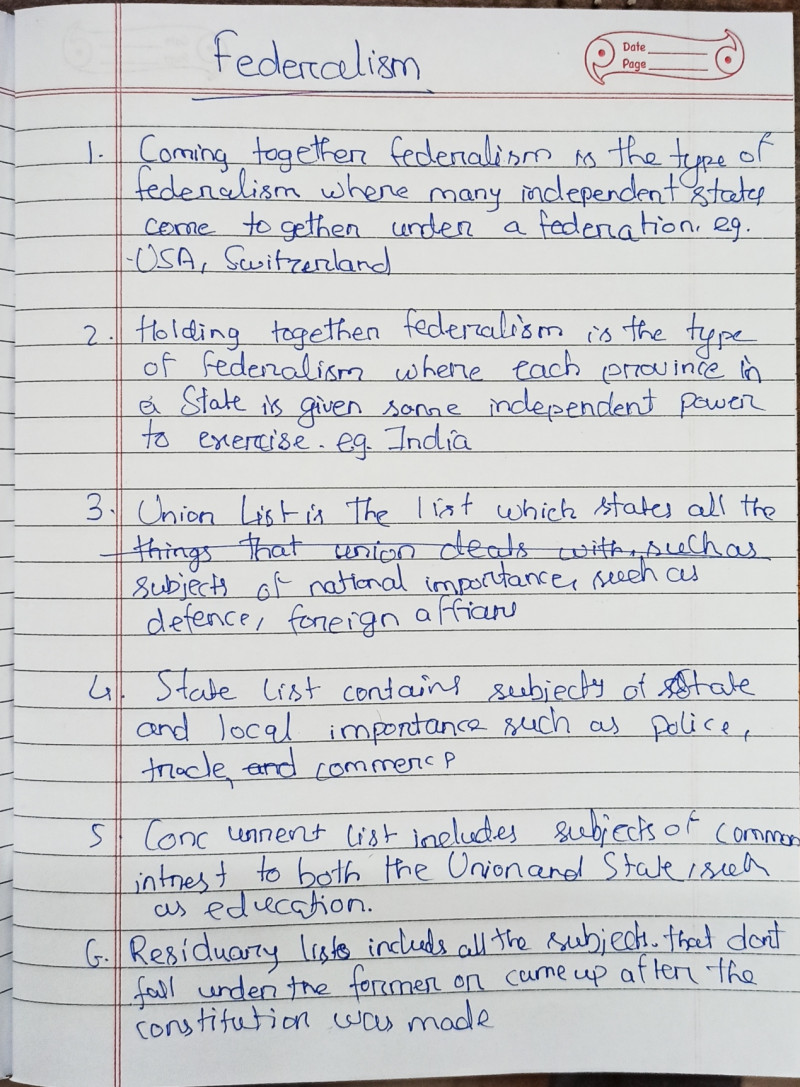 Federalism
Date
Page
1. Coming together federalism is the type of
federalism where many independent states
come together under a federation. eg.
-USA, Switzerland
2. Holding together federalism is the type
of federalism where each province in
a State is given some independent power
to exercise. eg. India
3. Union List is the list which states all the
things that union deals with, such as
subjects of national importance, such as
defence, foreign affiars
4. State list contains subjects of State
and local importance such as police,
trade, and commerce
5. Concurrent list includes subjects of common
intrest to both the Union and State, such
as education.
6. Residuary lists includs all the subjects that don't
fall under the former or came up after the
constitution was made